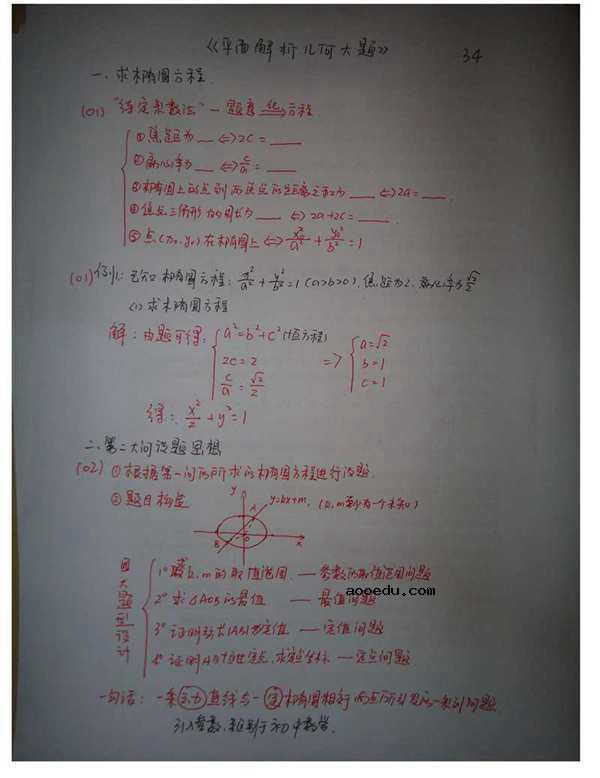 《平面解析几何大题》
34
一、求椭圆方程
(01) "待定系数法" — 题意 化 方程
① 焦距为 __ ⇔ 2c = __
② 离心率为 __ ⇔ c/a = __
③ 椭圆上的点到两焦点的距离之和为 __ ⇔ 2a = __
④ 焦点三角形的周长为 __ ⇔ 2a+2c = __
⑤ 点(x₀, y₀)在椭圆上 ⇔ x₀²/a² + y₀²/b² = 1
(01) 例1: 已知椭圆方程: x²/a² + y²/b² = 1 (a>b>0), 焦距为2, 离心率为√2/2
(1) 求椭圆方程
解: 由题可得, { a²=b²+c² (恒方程)
2c = 2
c/a = √2/2
⇒ { a=√2
b=1
c=1
得: x²/2 + y² = 1
二、第二大问设题思想
(02) ① 根据第一问所求的椭圆方程进行设题
② 题目构造
y
A
y=kx+m, (k, m至少有一个未知)
B
O
x
四大题型设计
1° 求k, m的取值范围 — 参数的取值范围问题
2° 求△AOB的最值 — 最值问题
aooedu.com
3° 证明弦长|AB|为定值 — 定值问题
4° 证明AB恒过定点, 求定点坐标 — 定点问题
一句话: 一条动直线与一定椭圆相行两点所引发的一系列问题
引入参数,